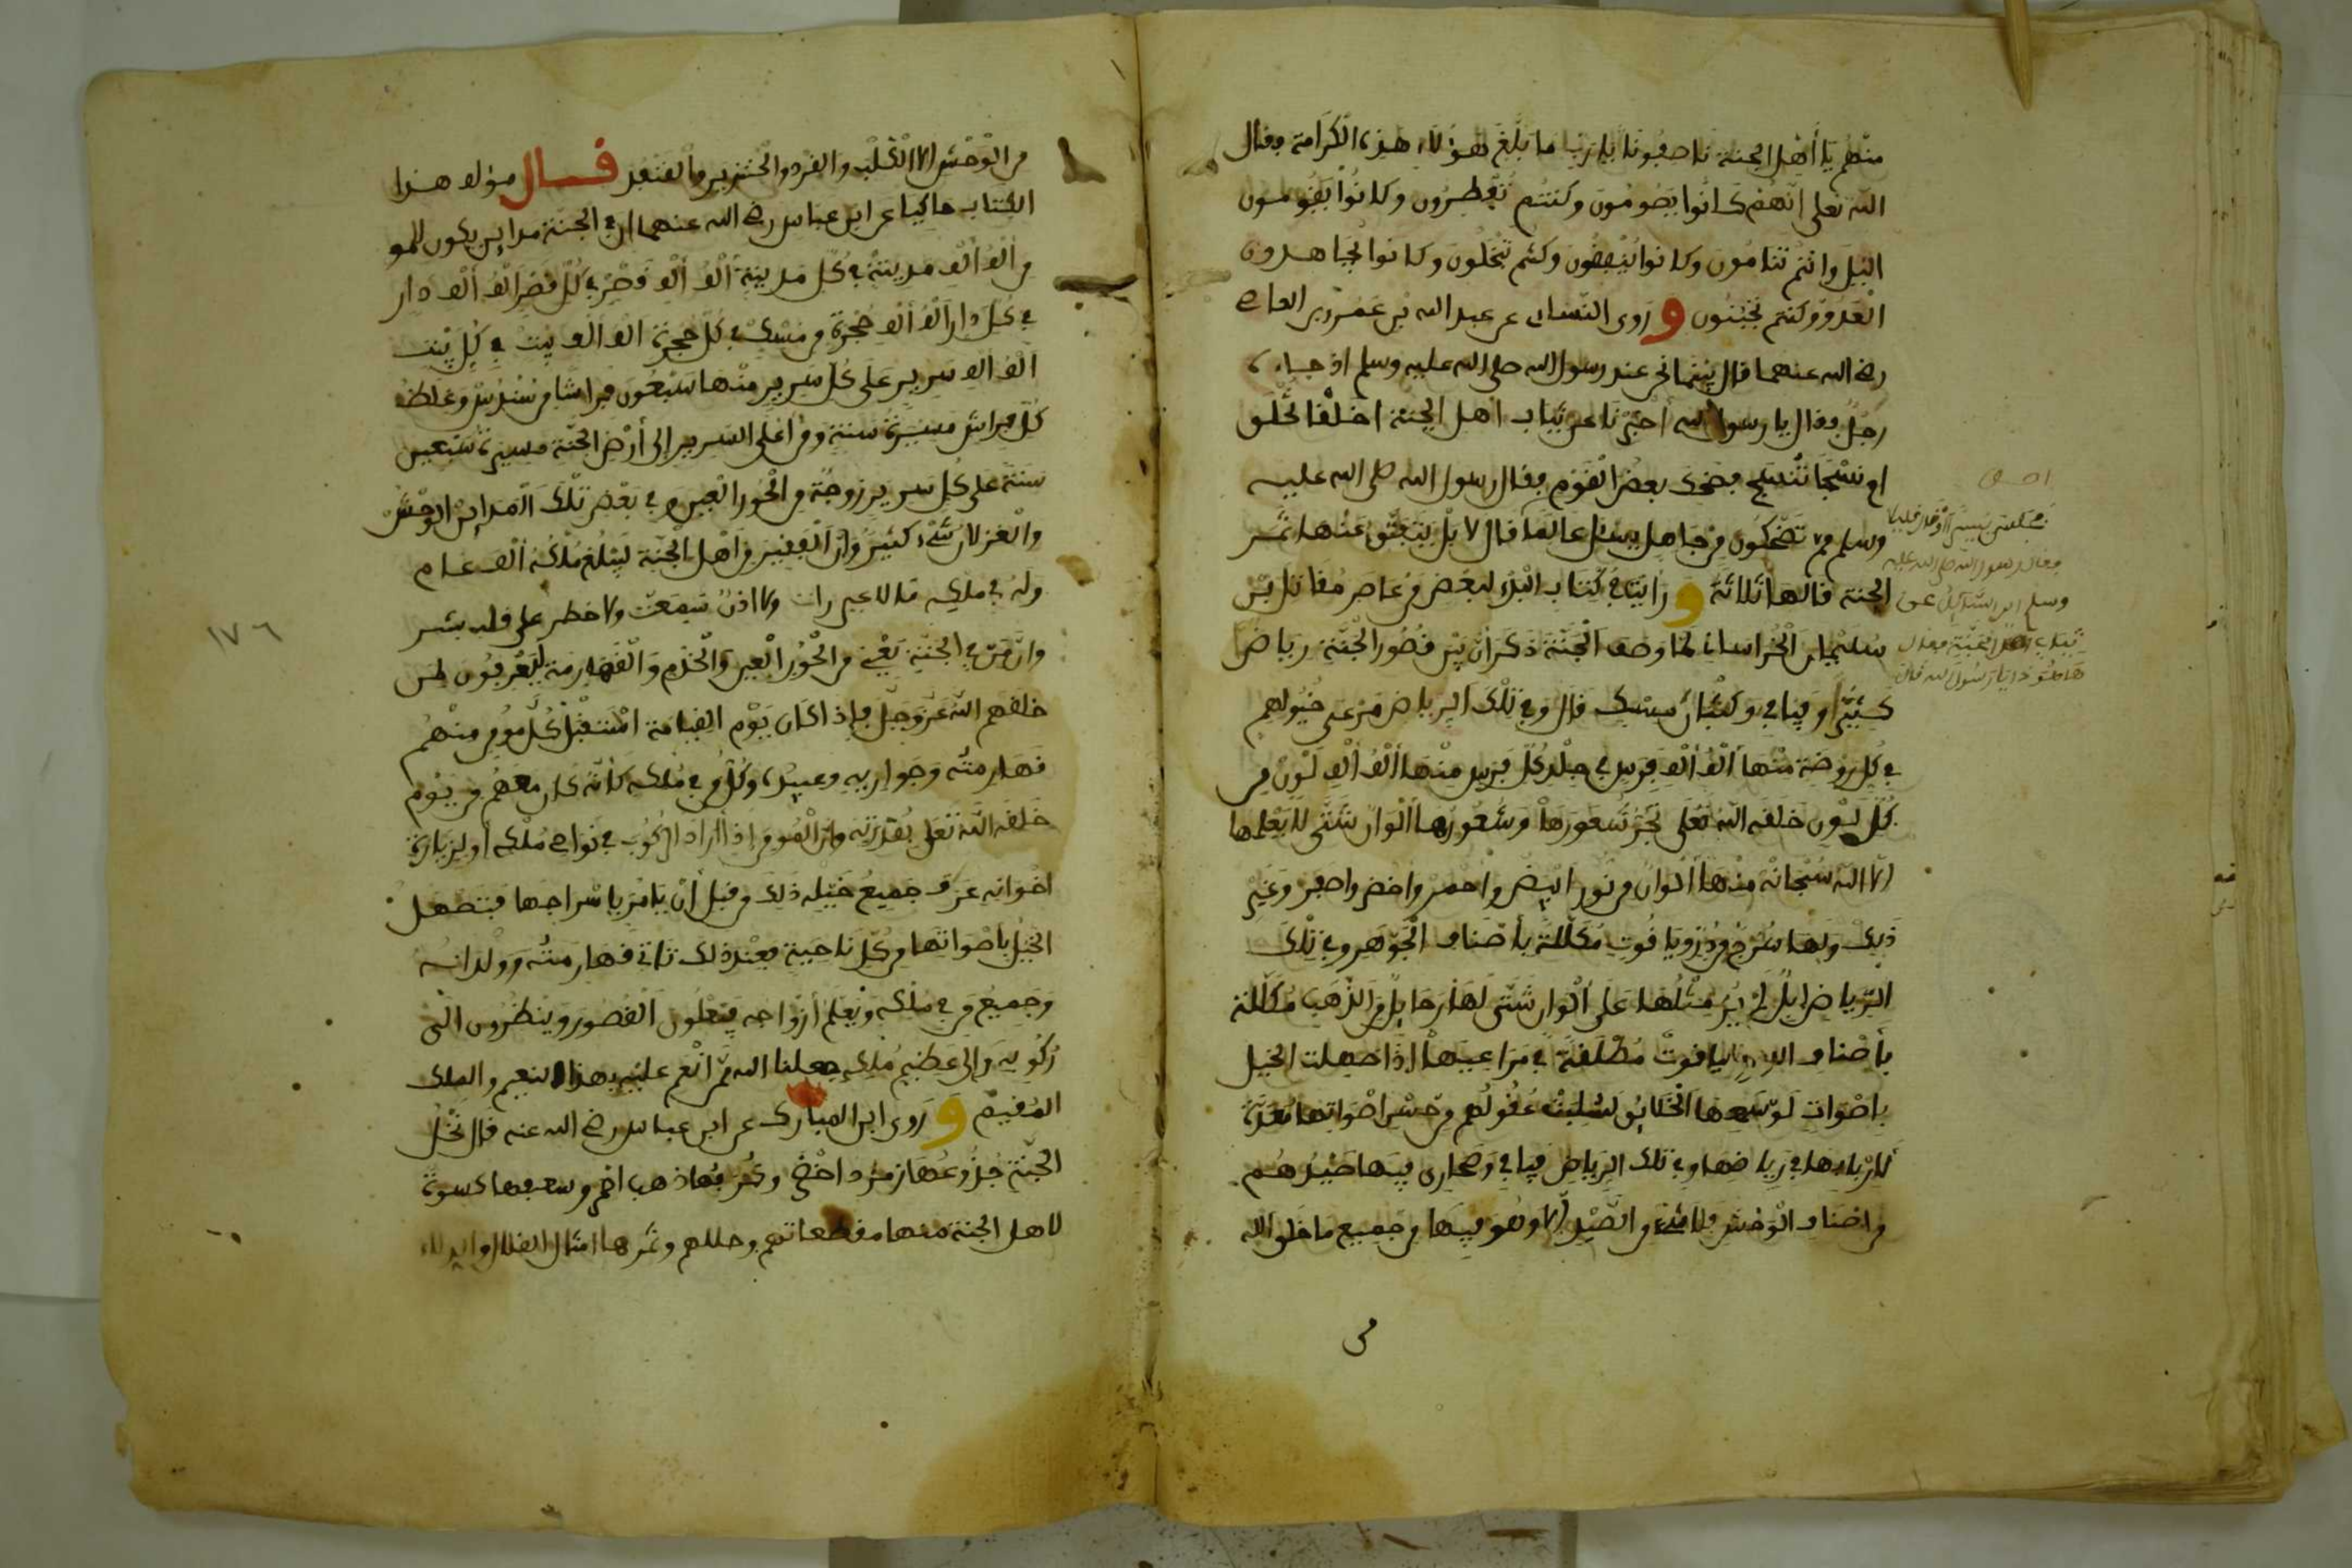 منهم يا أهل الجنة ناصفونا يا ربنا ما بلغ هؤلاء هذه الكرامة فقال
الله تعلى انهم كانوا يصومون وكنتم تفطرون وكانوا يقومون
اليل وانتم تنامون وكانوا ينفقون وكنتم تبخلون وكانوا يجاهدون
العدو وكنتم تجبنون وروى النساى عن عبد الله بن عمرو بن العاصى
رضى الله عنهما قال بينما نحن عند رسول الله صلى الله عليه وسلم اذ جاءه
رجل فقال يا رسول الله أخبرنا عن ثياب أهل الجنة اخلقا تخلق
ام نسجا تنسج فضحك بعض القوم فقال رسول الله صلى الله عليه
وسلم مم تضحكون من جاهل يسئل عالما قال لا بل يتشقق عنها ثمر
الجنة قالها ثلاثة ورأيت في كتاب البدء لبعض من عاصر مقاتل بن
سليمان الخراساني لما وصف الجنة ذكر أن بين قصور الجنة رياضا
كثيرا وفيافي وكثبان مسك قال وفي تلك الرياض مرعى خيولهم
في كل روضة منها ألف ألف فرس في جلد كل فرس منها ألف ألف لون من
كل لون خلقه الله تعلى تجر شعورها وشعورها ألوان شتى لا يعلمها
الا الله سبحانه منها ألوان من نور ابيض واحمر واخضر واصفر وغير
ذلك ولها سرج من در وياقوت مكللة بأصناف الجوهر وفي تلك
الرياض ابل لم ير مثلها على ألوان شتى لها رحايل من الذهب مكللة
بأصناف الدر والياقوت مطلقة في مراعيها إذا صهلت الخيل
بأصوات لو سمعها الخلايق لسلبت عقولهم من حسن اصواتها معدة
لاربابها في رياضها وفي تلك الرياض فيافي وصحارى فيها صيدهم
من اصناف الوحش فلا شىء من الصيد الا وهو فيها من جميع ما خلق الله
من
فقال رسول الله صلى الله عليه
وسلم اين السائل عن
ثياب اهل الجنة فقال
ها هو ذا يا رسول الله قال
من الوحش الا الكلب والقرد والخنزير والقنفد قال مؤلف هذا
الكتاب حاكيا عن ابن عباس رضى الله عنهما ان في الجنة مداين يكون للمو
من ألف ألف مدينة في كل مدينة ألف ألف قصر في كل قصر ألف ألف دار
في كل دار ألف ألف حجرة من مسك في كل حجرة ألف ألف بيت في كل بيت
ألف ألف سرير على كل سرير منها سبعون فراشا من سندس وغلظ
كل فراش مسيرة سنة ومن أعلى السرير إلى أرض الجنة مسيرة سبعين
سنة على كل سرير زوجة من الحور العين وفي بعض تلك المداين الوحش
والغزلان شىء كثير وان الفقير من اهل الجنة ليبلغ ملكه ألف عام
وله في ملكه ما لا عين رات ولا اذن سمعت ولا خطر على قلب بشر
وان من في الجنة يعني من الحور العين والخدم والقهارمة ليعرفون لمن
خلقهم الله عز وجل فإذا كان يوم القيامة استقبل كل مومن منهم
قهارمته وجواريه وعبيده وكل من في ملكه كأنه كان معهم من يوم
خلقه الله تعلى بقدرته وان المومن إذا أراد الركوب في نواحى ملكه أو لزيارة
اخوانه عرف جميع خيله ذلك من قبل أن يأمر بإسراجها فتصهل
الخيل بأصواتها من كل ناحية فعند ذلك تاتي قهارمته وولدانه
وجميع من في ملكه ويعلم أزواجه فيعلون القصور وينظرون الى
ركوبه وإلى عظيم ملكه جعلنا الله ممن انعم عليه بهذا النعيم والملك
المقيم وروى ابن المبارك عن ابن عباس رضى الله عنه قال نخل
الجنة جذوعها زمرد اخضر وكربها ذهب احمر وسعفها كسوة
لاهل الجنة منها مقطعاتهم وحللهم وثمرها امثال القلال والدلاء
١٧٦